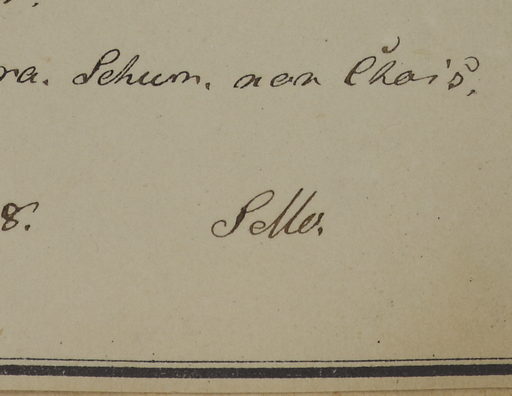 ra. Schum. non Chois.
8. Sello.